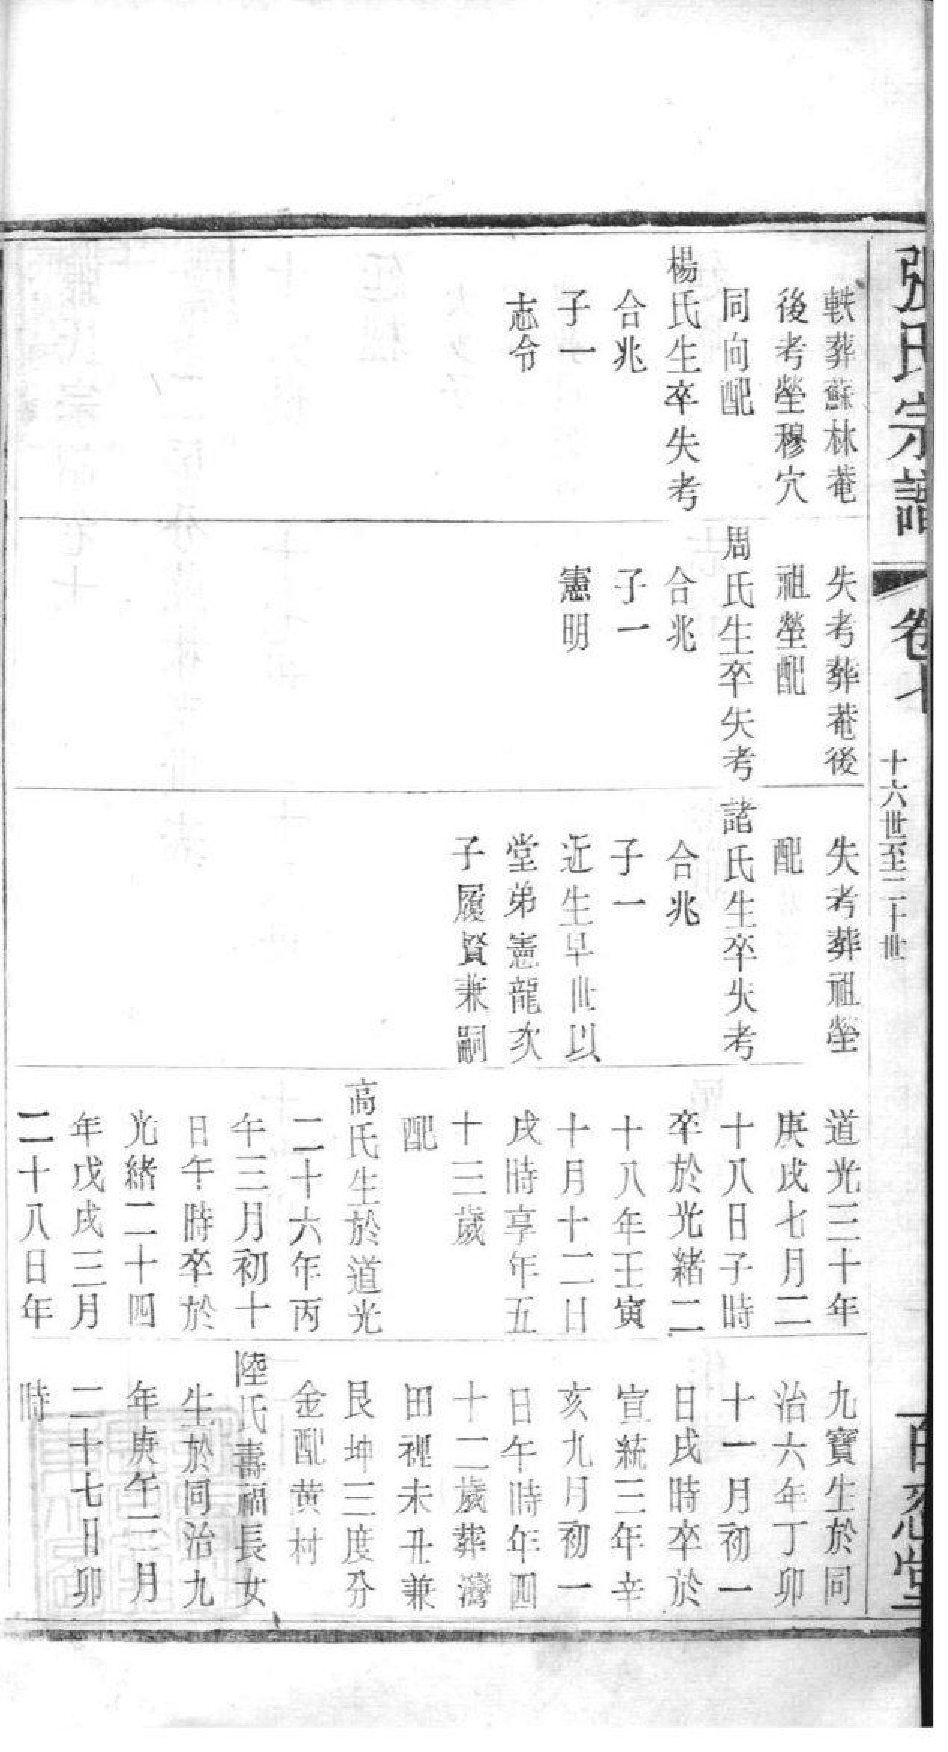 張氏宗譜
卷七
十六世至二十世
百忍堂
軼葬蘇林菴
後考塋穆穴
同向配
楊氏生卒失考
合兆
子一
志令
失考葬菴後
祖塋配
周氏生卒失考
合兆
子一
憲明
失考葬祖塋
配
諸氏生卒失考
合兆
子一
近生早世以
堂弟憲龍次
子履賢兼嗣
道光三十年
庚戌七月二
十八日子時
卒於光緒二
十八年壬寅
十月十二日
戌時享年五
十三歲
配
高氏生於道光
二十六年丙
午三月初十
日午時卒於
光緒二十四
年戊戌三月
二十八日年
九寶生於同
治六年丁卯
十一月初一
日戌時卒於
宣統三年辛
亥九月初一
日午時年四
十二歲葬灣
田裡未丑兼
艮坤三度分
金配黄村
陸氏壽福長女
生於同治九
年庚午三月
二十七日卯
時